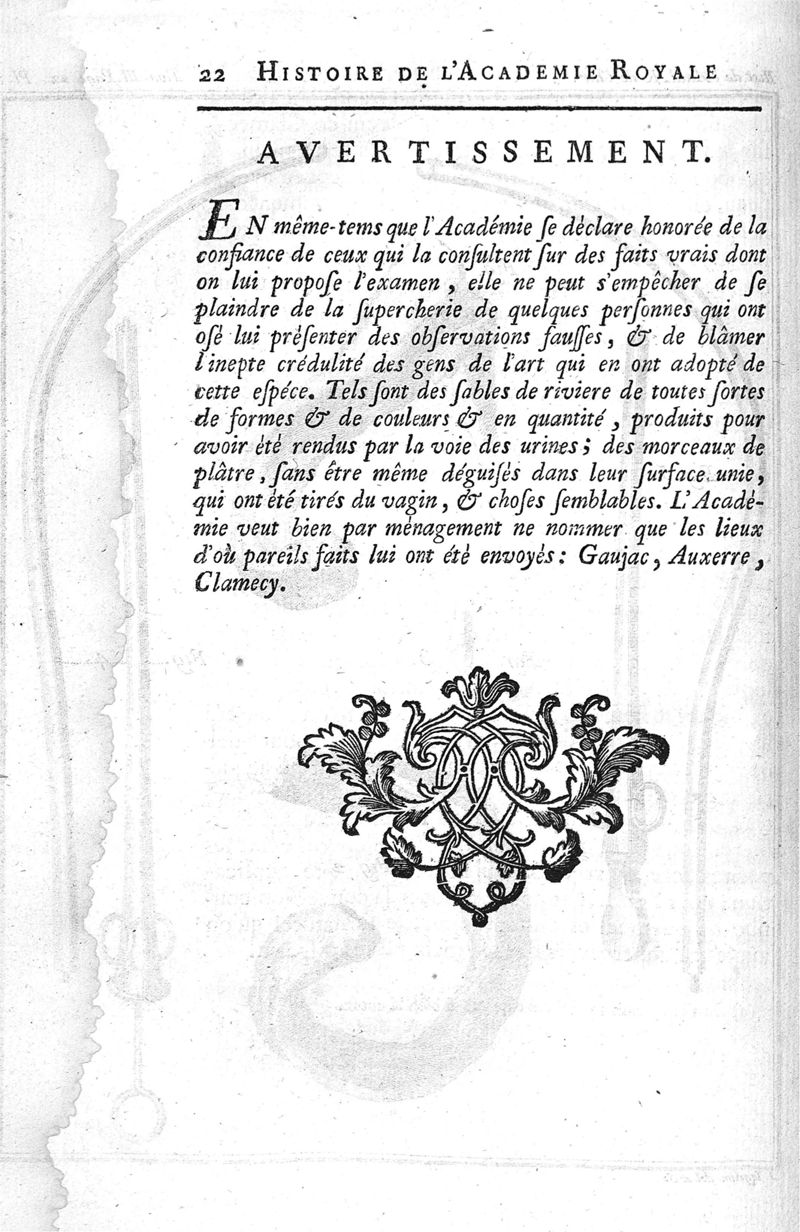 22 HISTOIRE DE L'ACADEMIE ROYALE
AVERTISSEMENT.
EN même-tems que l'Académie ſe déclare honorée de la
confiance de ceux qui la conſultent ſur des faits vrais dont
on lui propoſe l'examen, elle ne peut s'empêcher de ſe
plaindre de la ſupercherie de quelques perſonnes qui ont
oſé lui préſenter des obſervations fauſſes, & de blâmer
l'inepte crédulité des gens de l'art qui en ont adopté de
cette eſpéce. Tels ſont des ſables de riviere de toutes ſortes
de formes & de couleurs & en quantité, produits pour
avoir été rendus par la voie des urines; des morceaux de
plâtre, ſans être même déguiſés dans leur ſurface unie,
qui ont été tirés du vagin, & choſes ſemblables. L'Acadé-
mie veut bien par ménagement ne nommer que les lieux
d'où pareils faits lui ont été envoyés: Gaujac, Auxerre,
Clamecy.